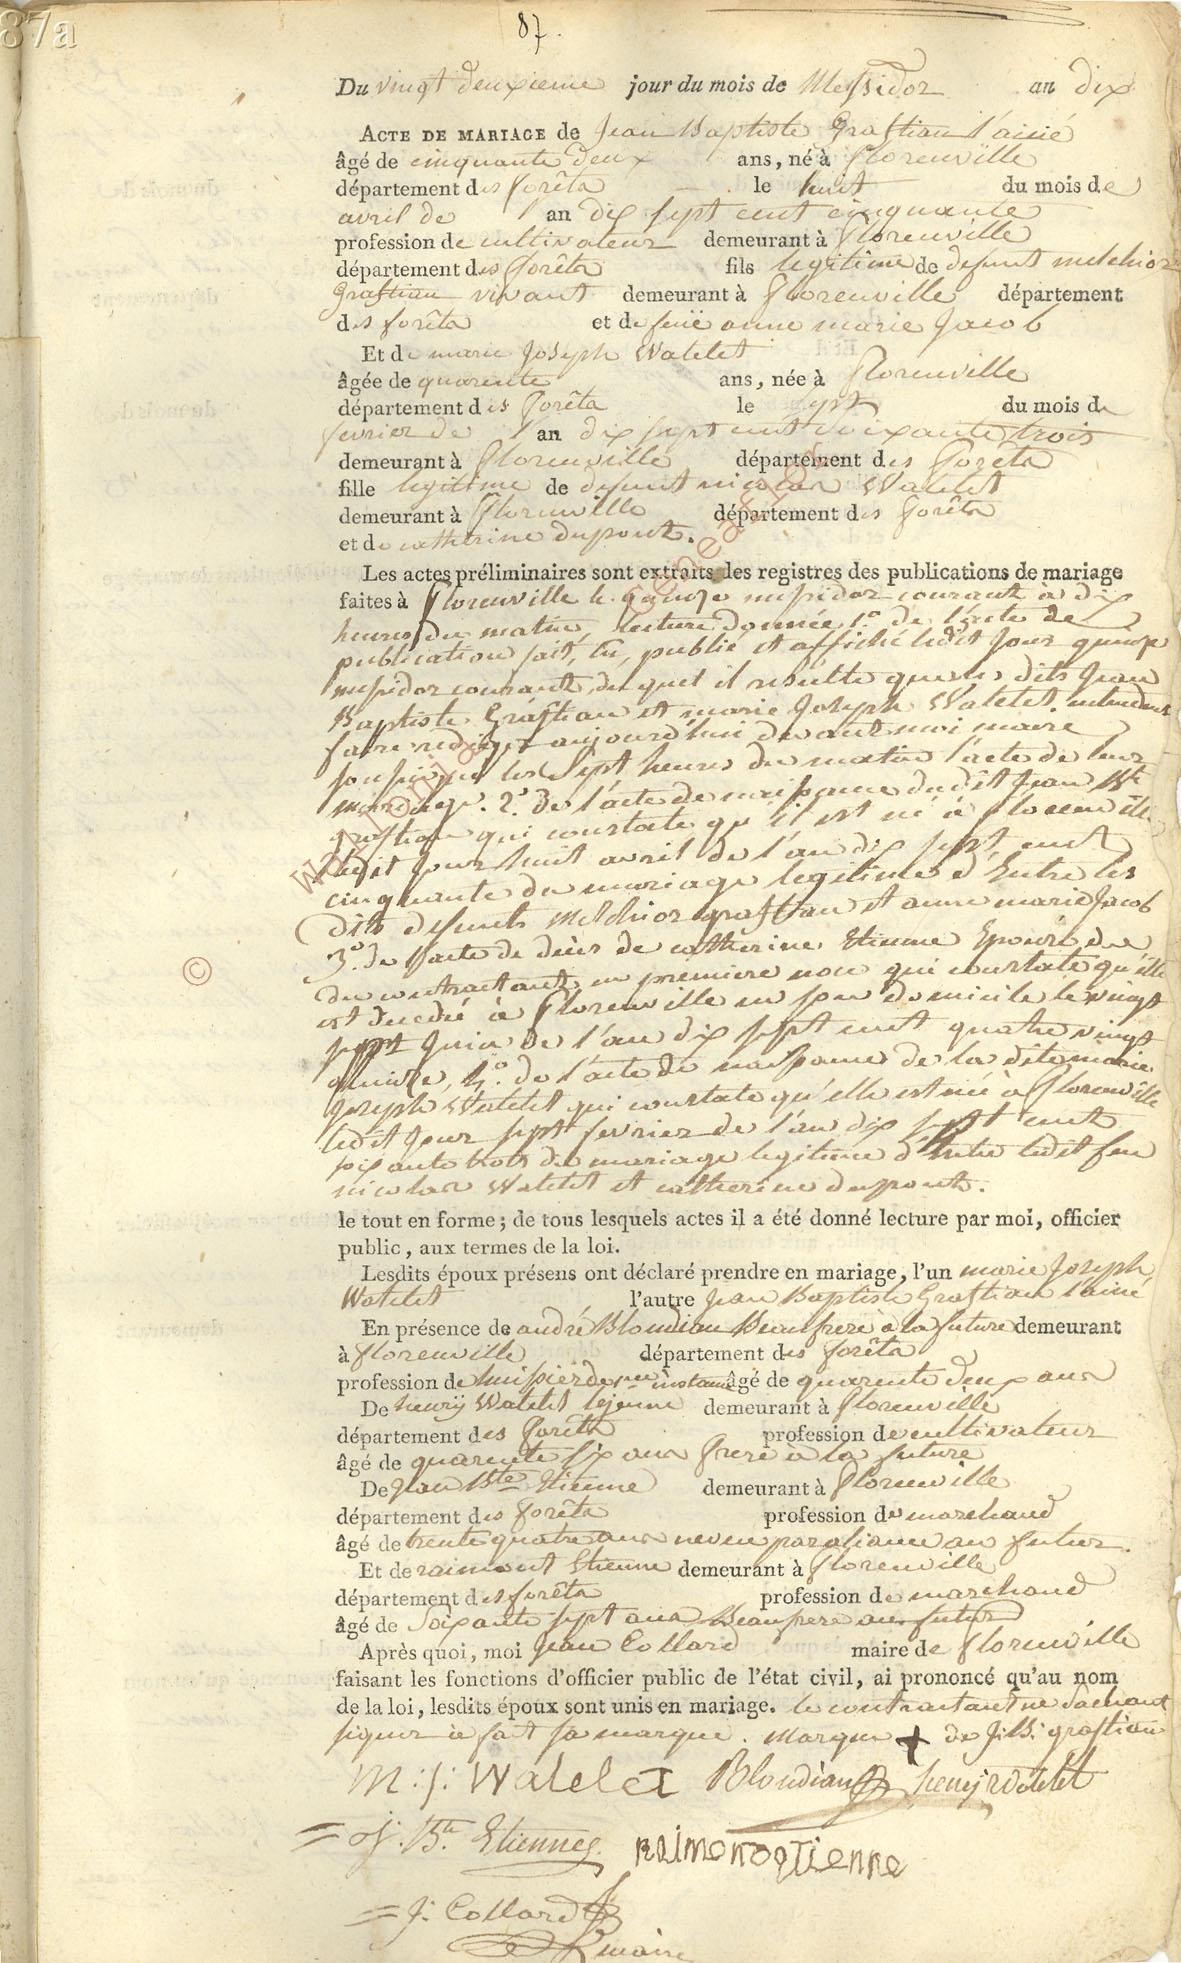 87a
87.
Du vingt deuxieme jour du mois de Messidor an dix
ACTE DE MARIAGE de Jean Baptiste Grastian l'ainé
âgé de cinquante deux ans, né à Florenville
département des forêts le huit du mois de
avril de an dix sept cent cinquante
profession de cultivateur demeurant à Florenville
département des forêts fils legitime de defunt melchior
Grastian vivant demeurant à Florenville département
des forêts et de feüe anne marie Jacob
Et de marie Joseph Watelet
âgée de quarente ans, née à Florenville
département des forêts le sept du mois de
fevrier de an dix sept cent soixante trois
demeurant à Florenville département des forêts
fille legitime de defunt nicolas Watelet
demeurant à Florenville département des forêts
et de catherine dupont.
Les actes préliminaires sont extraits des registres des publications de mariage
faites à Florenville le quinze messidor courant à dix
heures du matin lecture donnée 1.° de l'acte de
publication fait, lu, publié et affiché ledit jour quinze
messidor courant, duquel il resulte que les dits Jean
Baptiste Grastian et marie Joseph Watelet. entendent
faire rediger aujourd'hui devant moi maire
soussigné les sept heures du matin l'acte de leur
mariage. 2.° De l'acte de naissance dudit Jean Bte
grastian qui constate qu'il est né à Florenville
ledit jour huit avril de l'an dix sept cent
cinquante du mariage legitime d'Entre les
dits defunts Melchior grastian et anne marie Jacob
3.° de l'acte de décès de catherine Etienne Epouse du
du contractant en premiere noce qui constate qu'elle
est decedée à Florenville en son domicile le vingt
sept Juin de l'an dix sept cent quatre vingt
quinze, 4.° de l'acte de naissance de la dite marie
Joseph Watelet qui constate qu'elle est née à florenville
ledit jour sept fevrier de l'an dix sept cent
soixante trois du mariage legitime d'Entre ledit feu
nicolas Watelet et catherine dupont.
le tout en forme ; de tous lesquels actes il a été donné lecture par moi, officier
public, aux termes de la loi.
Lesdits époux présens ont déclaré prendre en mariage, l'un marie Joseph
Watelet l'autre Jean Baptiste Grastian l'ainé
En présence de andré Blondiau Beaufrere à la future demeurant
à florenville département des forêts
profession de huissier de instance âgé de quarente deux ans
De henrÿ Watelet lejeune demeurant à Florenville
département des forêts profession de cultivateur
âgé de quarente six ans frere à la future
De Jean Bte Etienne demeurant à Florenville
département des forêts profession de marchand
âgé de trente quatre ans neveu par aliance au futur.
Et de raimont Etienne demeurant à florenville
département des forêts profession de marchand
âgé de soixante sept ans Beaupere au futur
Après quoi, moi Jean Collard maire de florenville
faisant les fonctions d'officier public de l'état civil, ai prononcé qu'au nom
de la loi, lesdits époux sont unis en mariage. le contractant ne sachant
signer a fait sa marque. Marque + de J: B: grastian
M: J: Watelet Blondiau henrÿ Watelet
J. Bte Etienne raimon Etienne
J: Collard
maire
©